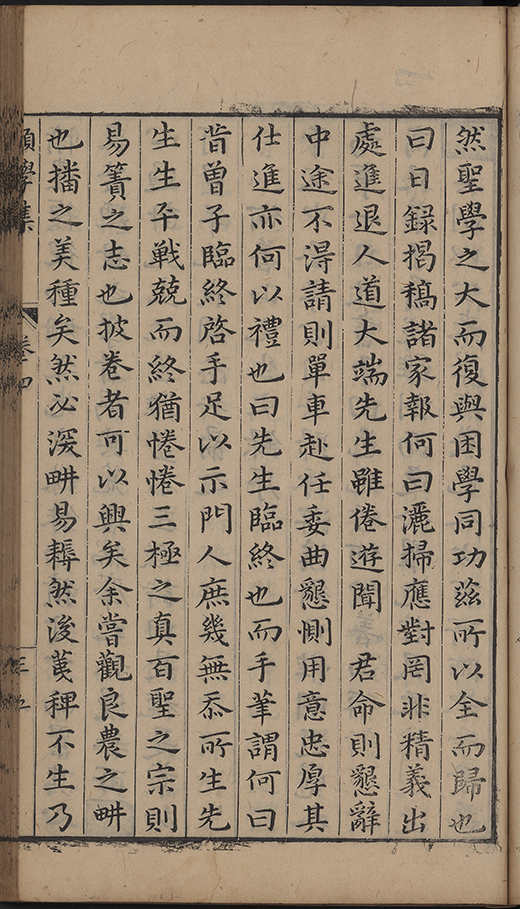 然聖學之大而復與困學同功茲所以全而歸也
曰日録揭稿諸家報何曰灑掃應對罔非精義出
處進退人道大端先生雖倦遊聞 君命則懇辭
中途不得請則單車赴任委曲懇惻用意忠厚其
仕進亦何以禮也曰先生臨終也而手筆謂何曰
昔曾子臨終啓手足以示門人庶幾無忝所生先
生生平戰兢而終猶惓惓三極之真百聖之宗則
易簀之志也披卷者可以興矣余嘗觀良農之畊
也播之美種矣然必深畊易耨然後荑稗不生乃
願學集 卷四